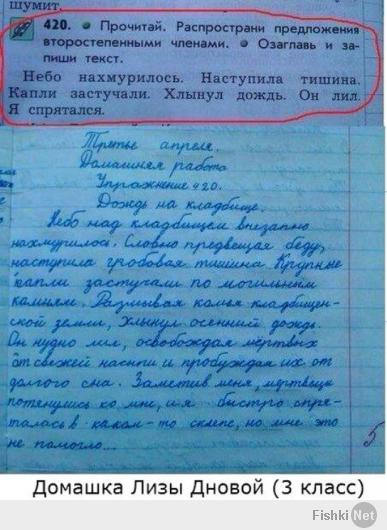 шумит.
420. • Прочитай. Распространи предложения
второстепенными членами. • Озаглавь и за-
пиши текст.
Небо нахмурилось. Наступила тишина.
Капли застучали. Хлынул дождь. Он лил.
Я спрятался.
Третье апреля.
Домашняя работа
Упражнение 420.
Дождь на кладбище.
Небо над кладбищем внезапно
нахмурилось. Словно предвещая беду,
наступила гробовая тишина. Крупные
капли застучали по могильным
камням. Размывая комья кладбищен-
ской земли, хлынул осенний дождь.
Он нудно лил, освобождая мёртвых
от свежей насыпи и пробуждая их от
долгого сна. Заметив меня, мертвецы
потянулись ко мне, и я быстро спря-
талась в каком-то склепе, но мне это
не помогло...
5
Домашка Лизы Дновой (3 класс)
Fishki Net